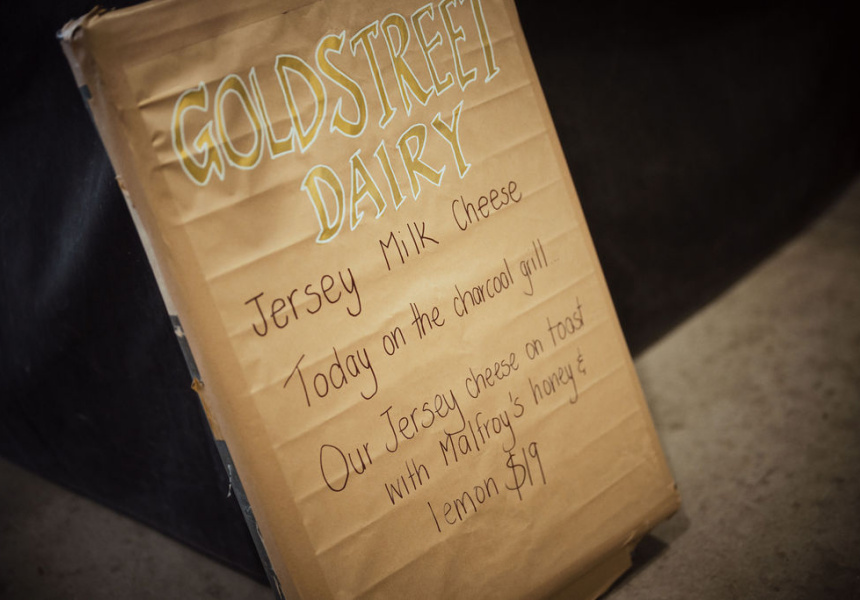 GOLDSTREET
DAIRY
Jersey Milk Cheese
Today on the charcoal grill...
Our Jersey cheese on toast
with Malfroy's honey &
lemon $19